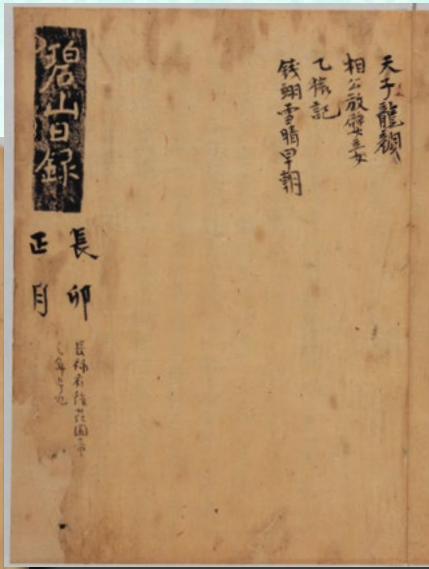 天子龍顔
相公放嬖妾
乙猿記
錢翊雪晴早朝
碧山日録
長卯
正月